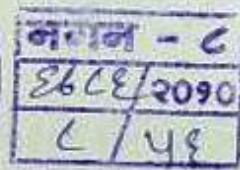 नगन - ८
६७८६/२०१०
८ / ५६